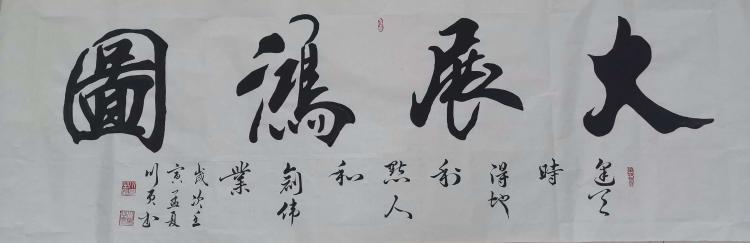 大展鴻圖
逢天
時
得地
利
點人
和
創伟
業
歲次壬
寅孟夏
川
书